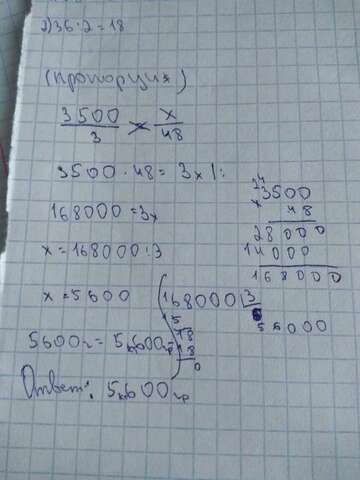 2) 36:2=18
(пропорция)
3500/3 = x/48
3500·48=3x |:
168000=3x
x=168000:3
x=5600
5600г=5кг600гр
Ответ: 5кг600гр
24
×3500
48
28000
14000
168000
168000 3
15 56000
18
18
0